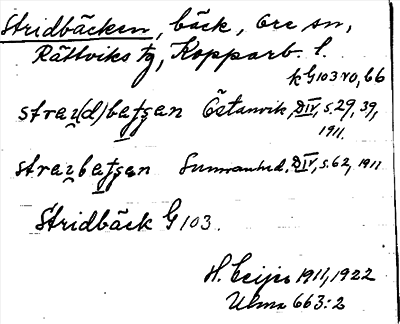 Stridbäcken, bäck, Ore sn,
Rättviks tg, Kopparb. l.
kG103 vo, 66
Östanvik, DIV, s. 29, 39,
1911.
Sunnanhed, DIV, s. 62, 1911
Stridbäck G 103.
H. Geijer 1911, 1922
Ulma 663:2